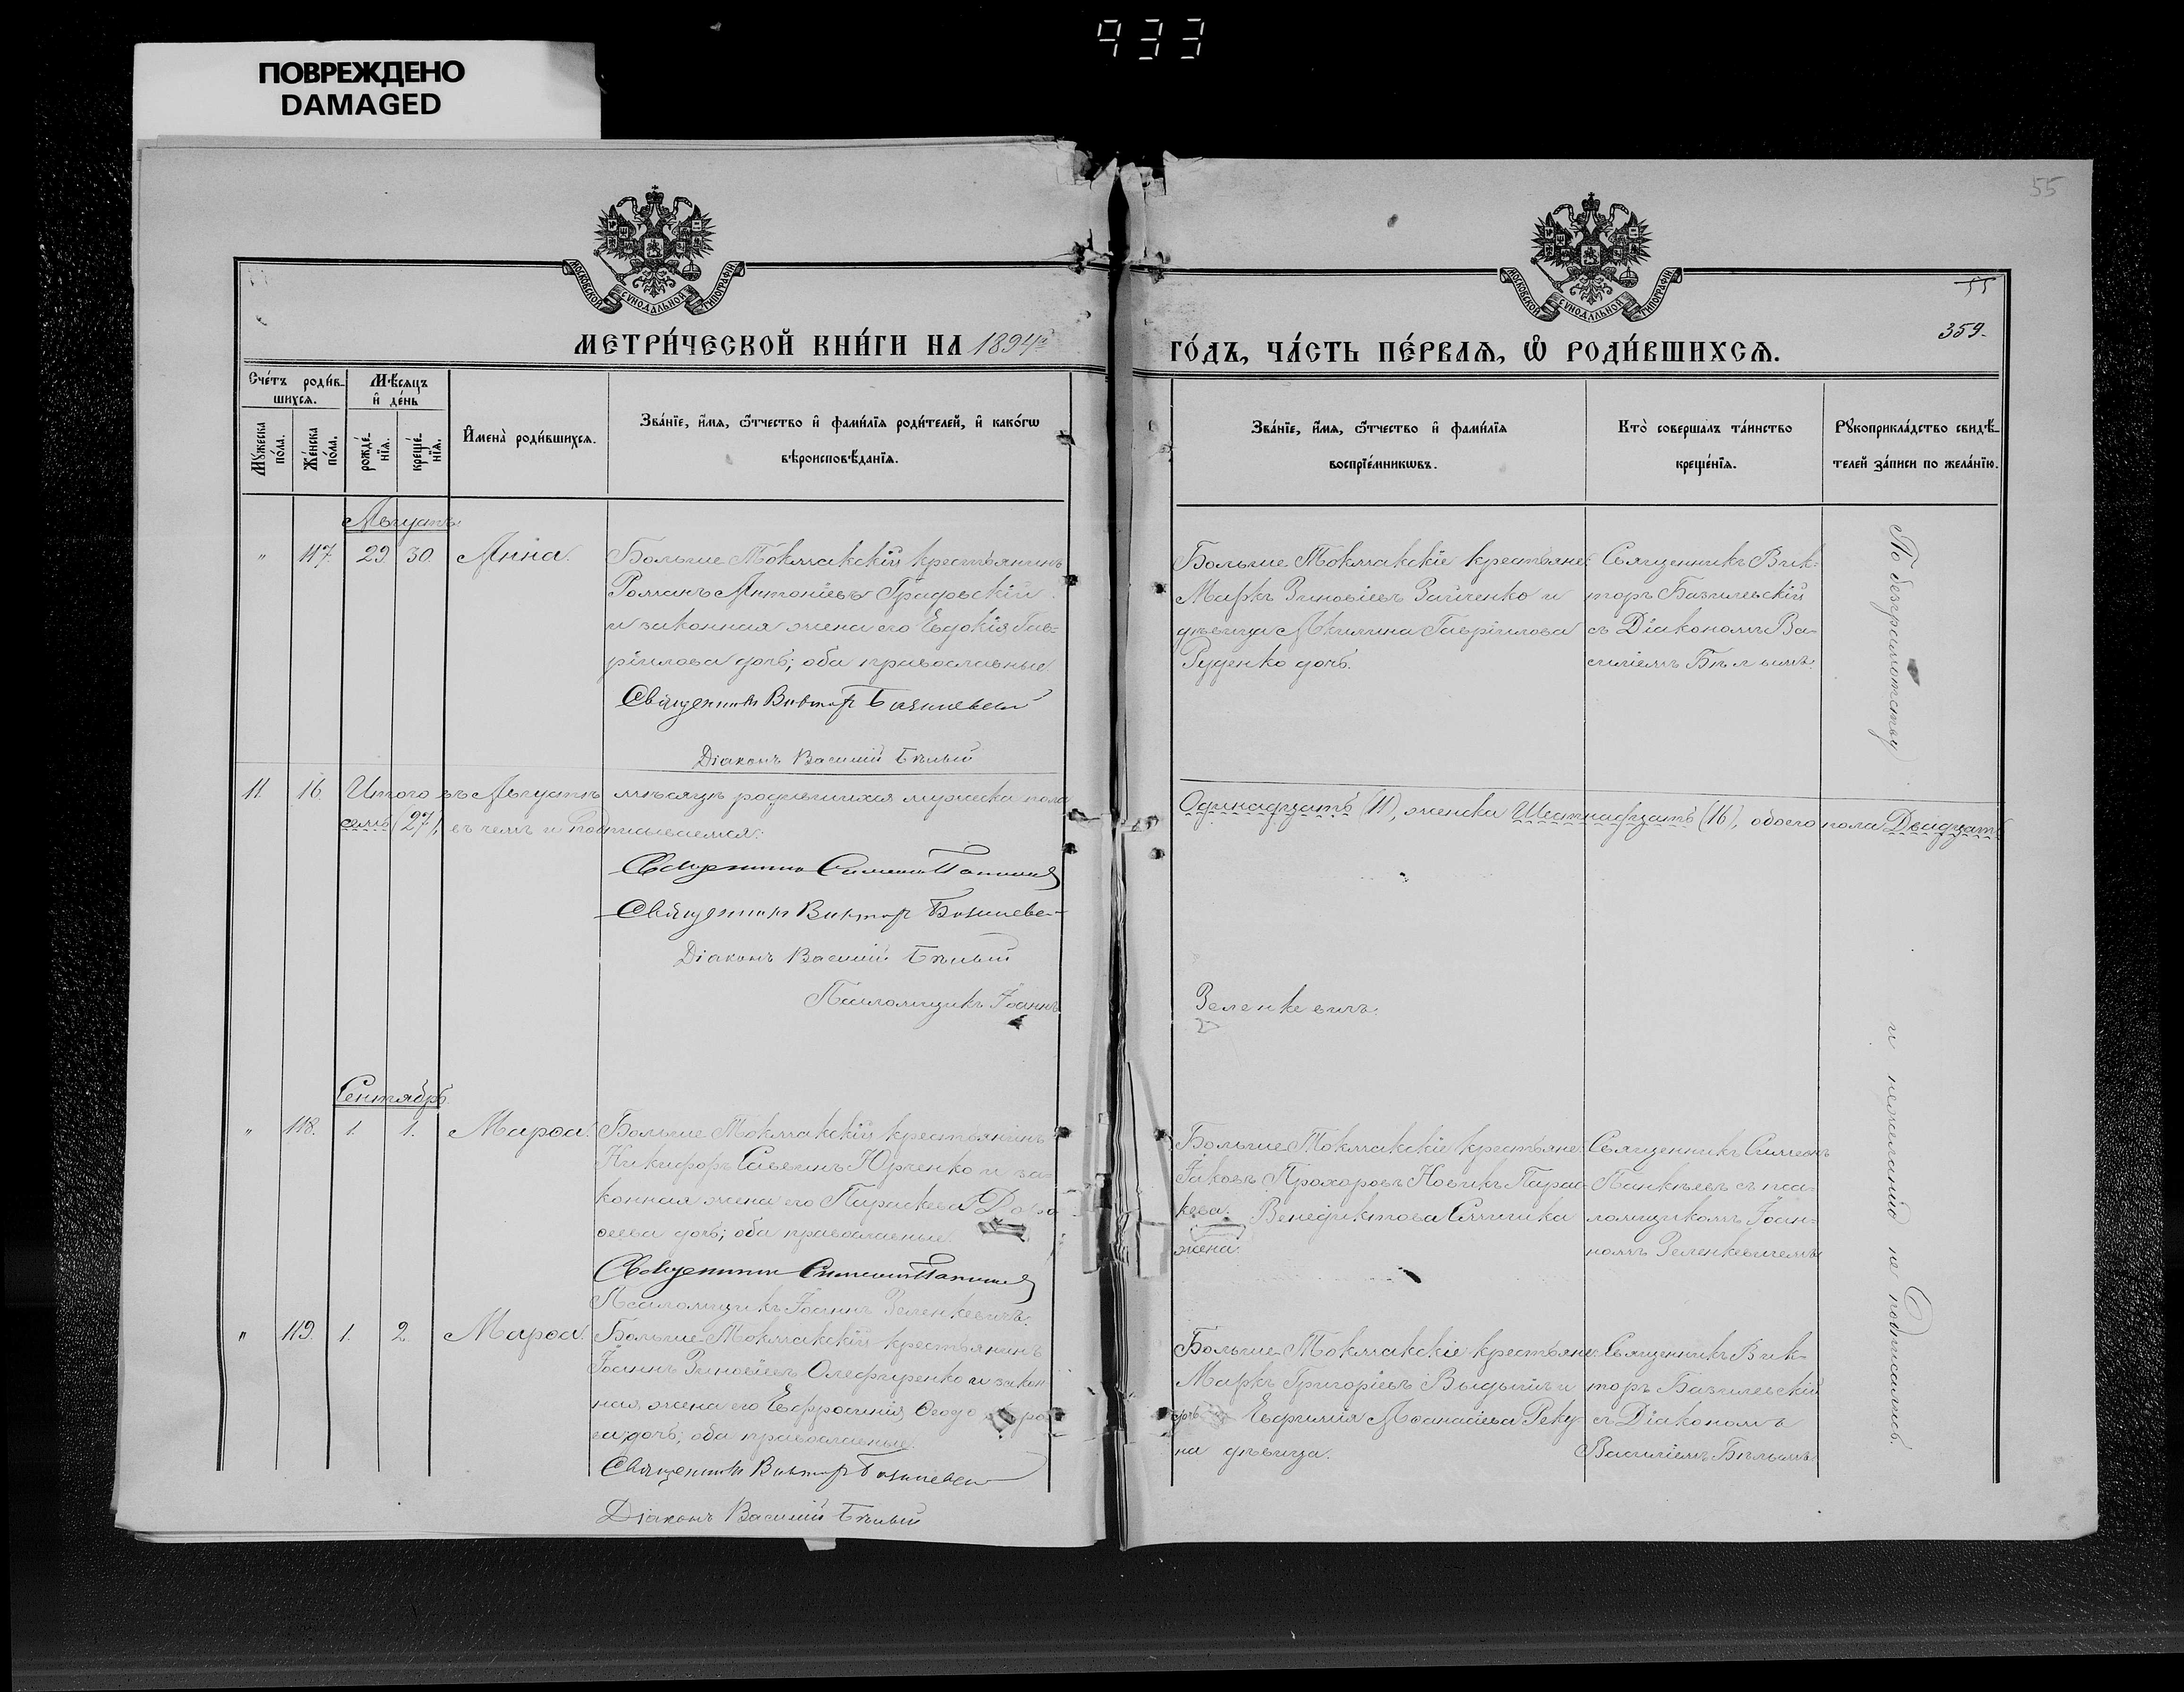 933
ПОВРЕЖДЕНО
DAMAGED
55
МОСКОВСКОЙ СѴНОДАЛЬНОЙ ТИПОГРАФІИ
МОСКОВСКОЙ СѴНОДАЛЬНОЙ ТИПОГРАФІИ
55
359.
МЕТРИ́ЧЕСКОЙ КНИ́ГИ НА 1894й
ГО́ДЪ, ЧА́СТЬ ПЕ́РВАѦ, Ѡ҆ РОДИ́ВШИХСѦ.
Сче́тъ роди́в-
шихсѧ.
Мѣ́сѧцъ
и҆ де́нь
Мꙋ́жеска
по́ла.
Же́нска
по́ла.
рожде́-
нїѧ.
креще́-
нїѧ.
И҆мена̀ роди́вшихсѧ.
Зва́нїе, и҆́мѧ, ѻ҆́тчество и҆ фами́лїѧ роди́телей, и҆ како́гѡ
вѣроисповѣ́данїѧ.
Зва́нїе, и҆́мѧ, ѻ҆́тчество и҆ фами́лїѧ
воспрїе́мникѡвъ.
Кто̀ соверша́лъ та́инство
креще́нїѧ.
Рꙋкоприкла́дство свидѣ́-
телей за́писи по жела́нїю.
Августъ
" 117. 29. 30. Анна.
Больше-Токмакскій крестьянинъ
Романъ Антоніевъ Графскій
и законная жена его Евдокія Гав-
ріилова дочь; оба православные
Священникъ Викторъ Базилевскій
Діаконъ Василій Бѣлый
Больше-Токмакскіе крестьяне:
Маркъ Зиновіевъ Зайченко и
дѣвица Акилина Гавріилова
Руденко дочь.
Священникъ Вик-
торъ Базилевскій
съ Діакономъ Ва-
силіемъ Бѣлымъ.
11. 16. Итого въ Августѣ мѣсяцѣ родившихся мужеска пола
Одинадцать (11), женска Шестнадцать (16), обоего пола Двадцать
семь (27), въ чемъ и подписываемся:
Священникъ Симеонъ
Священникъ Викторъ Базилевскій
Діаконъ Василій Бѣлый
Псаломщикъ Іоаннъ
Зеленкевичъ.
Сентябрь.
" 118. 1. 1. Марѳа.
Больше-Токмакскій крестьянинъ
Никифоръ Саввинъ Юрченко и за-
конная жена его Параскева Доро
ѳеева дочь; оба православные.
Священникъ Симеонъ
Псаломщикъ Іоаннъ Зеленкевичъ.
Больше-Токмакскіе крестьяне:
Іаковъ Прохоровъ Новикъ Парас-
кева Венедиктова
жена.
Священникъ Симеонъ
съ пса-
ломщикомъ Іоан-
номъ Зеленкевичемъ
" 119. 1. 2. Марѳа.
Больше-Токмакскій крестьянинъ
Іоаннъ Зиновіевъ Олефиренко и закон-
ная жена его Евфросинія Ѳеодо ро
ва дочь; оба православные.
Священникъ Викторъ Базилевскій
Діаконъ Василій Бѣлый
Больше-Токмакскіе крестьяне:
Маркъ Григоріевъ и
Евфимія Аѳанасіева Реку-
на дѣвица.
Священникъ Вик-
торъ Базилевскій
съ Діакономъ
Василіемъ Бѣлымъ
По безграмотству
и нежеланію не подписались.